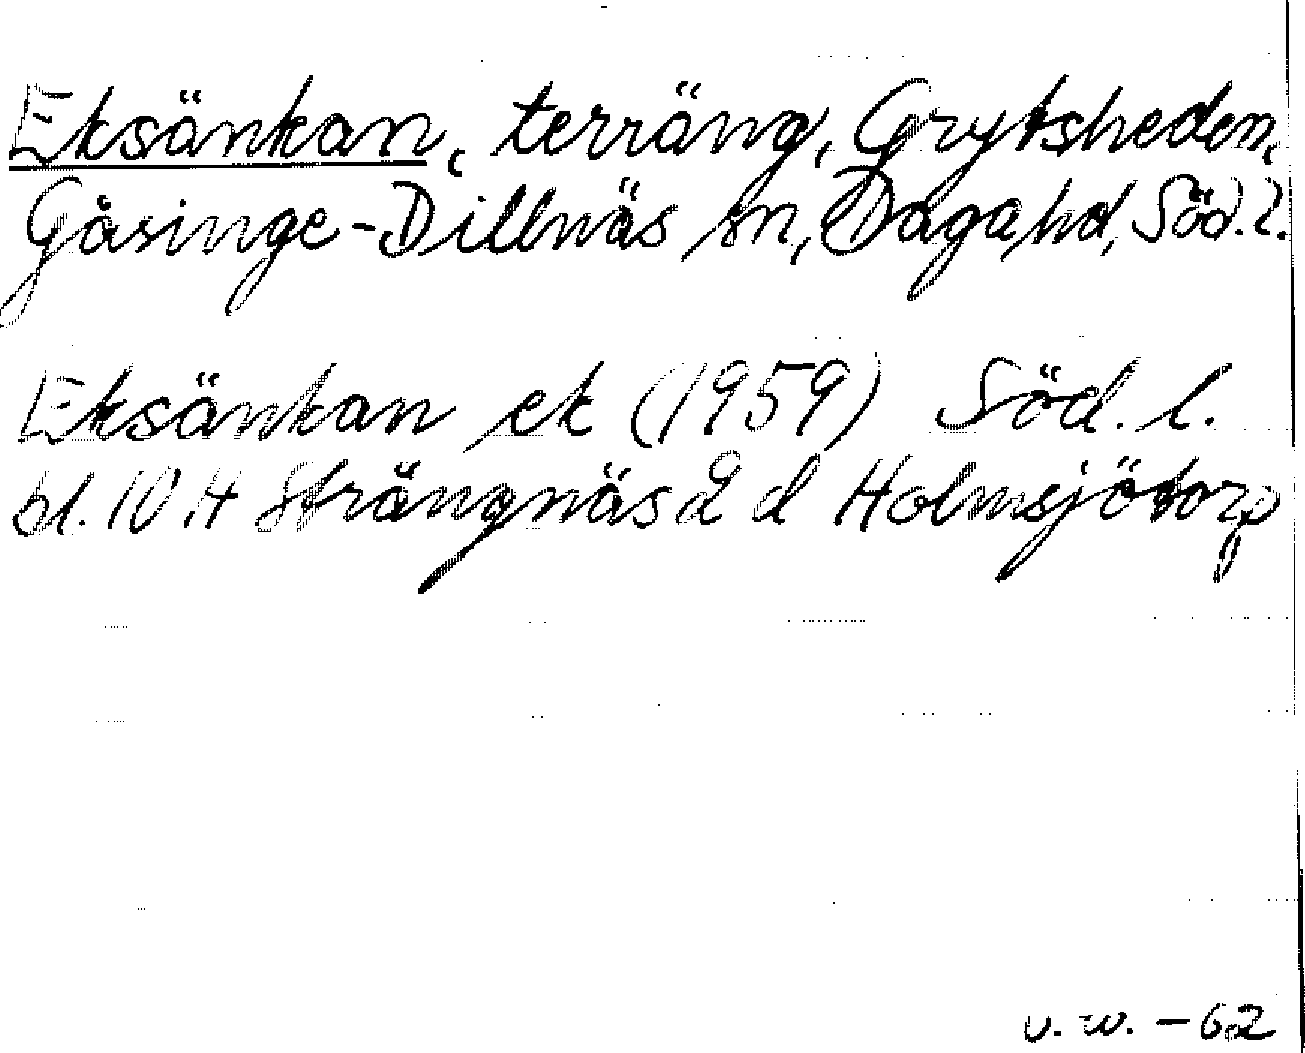 Eksänkan, terräng, Grytsheden,
Gåsinge-Dillnäs sn, Daga hd, Söd. l.
Eksänkan ek (1959) Söd. l.
bl. 10 H Strängnäs 2 d Holmsjötorp
v. w. - 62